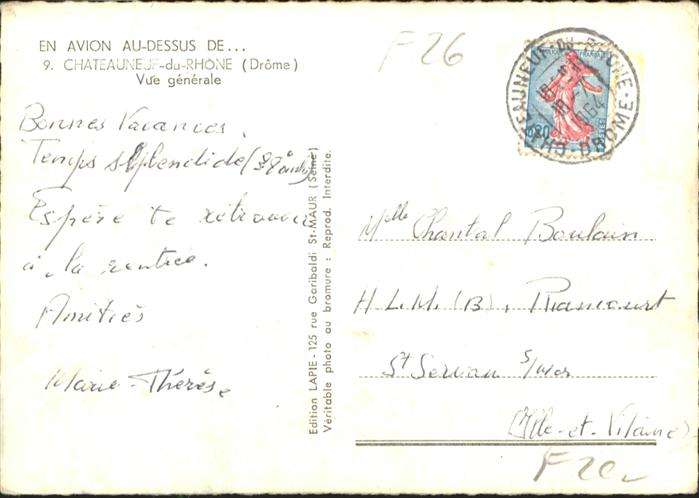 EN AVION AU-DESSUS DE...
9. CHATEAUNEUF-du-RHÔNE (Drôme)
Vue générale
F26
Bonnes Vacances.
Temps splendide (38°
Espère te retrouver
à la rentrée.
Amitiés
Marie-Thérèse
Edition LAPIE - 125 rue Garibaldi St-MAUR (Seine)
Véritable photo au bromure : Reprod. Interdite.
CHATEAUNEUF DU RHONE - DROME
1964
0,20
Melle Chantal Boulain
H.L.M. (B), Rancourt
St Servan s/mer
(Ille-et-Vilaine)